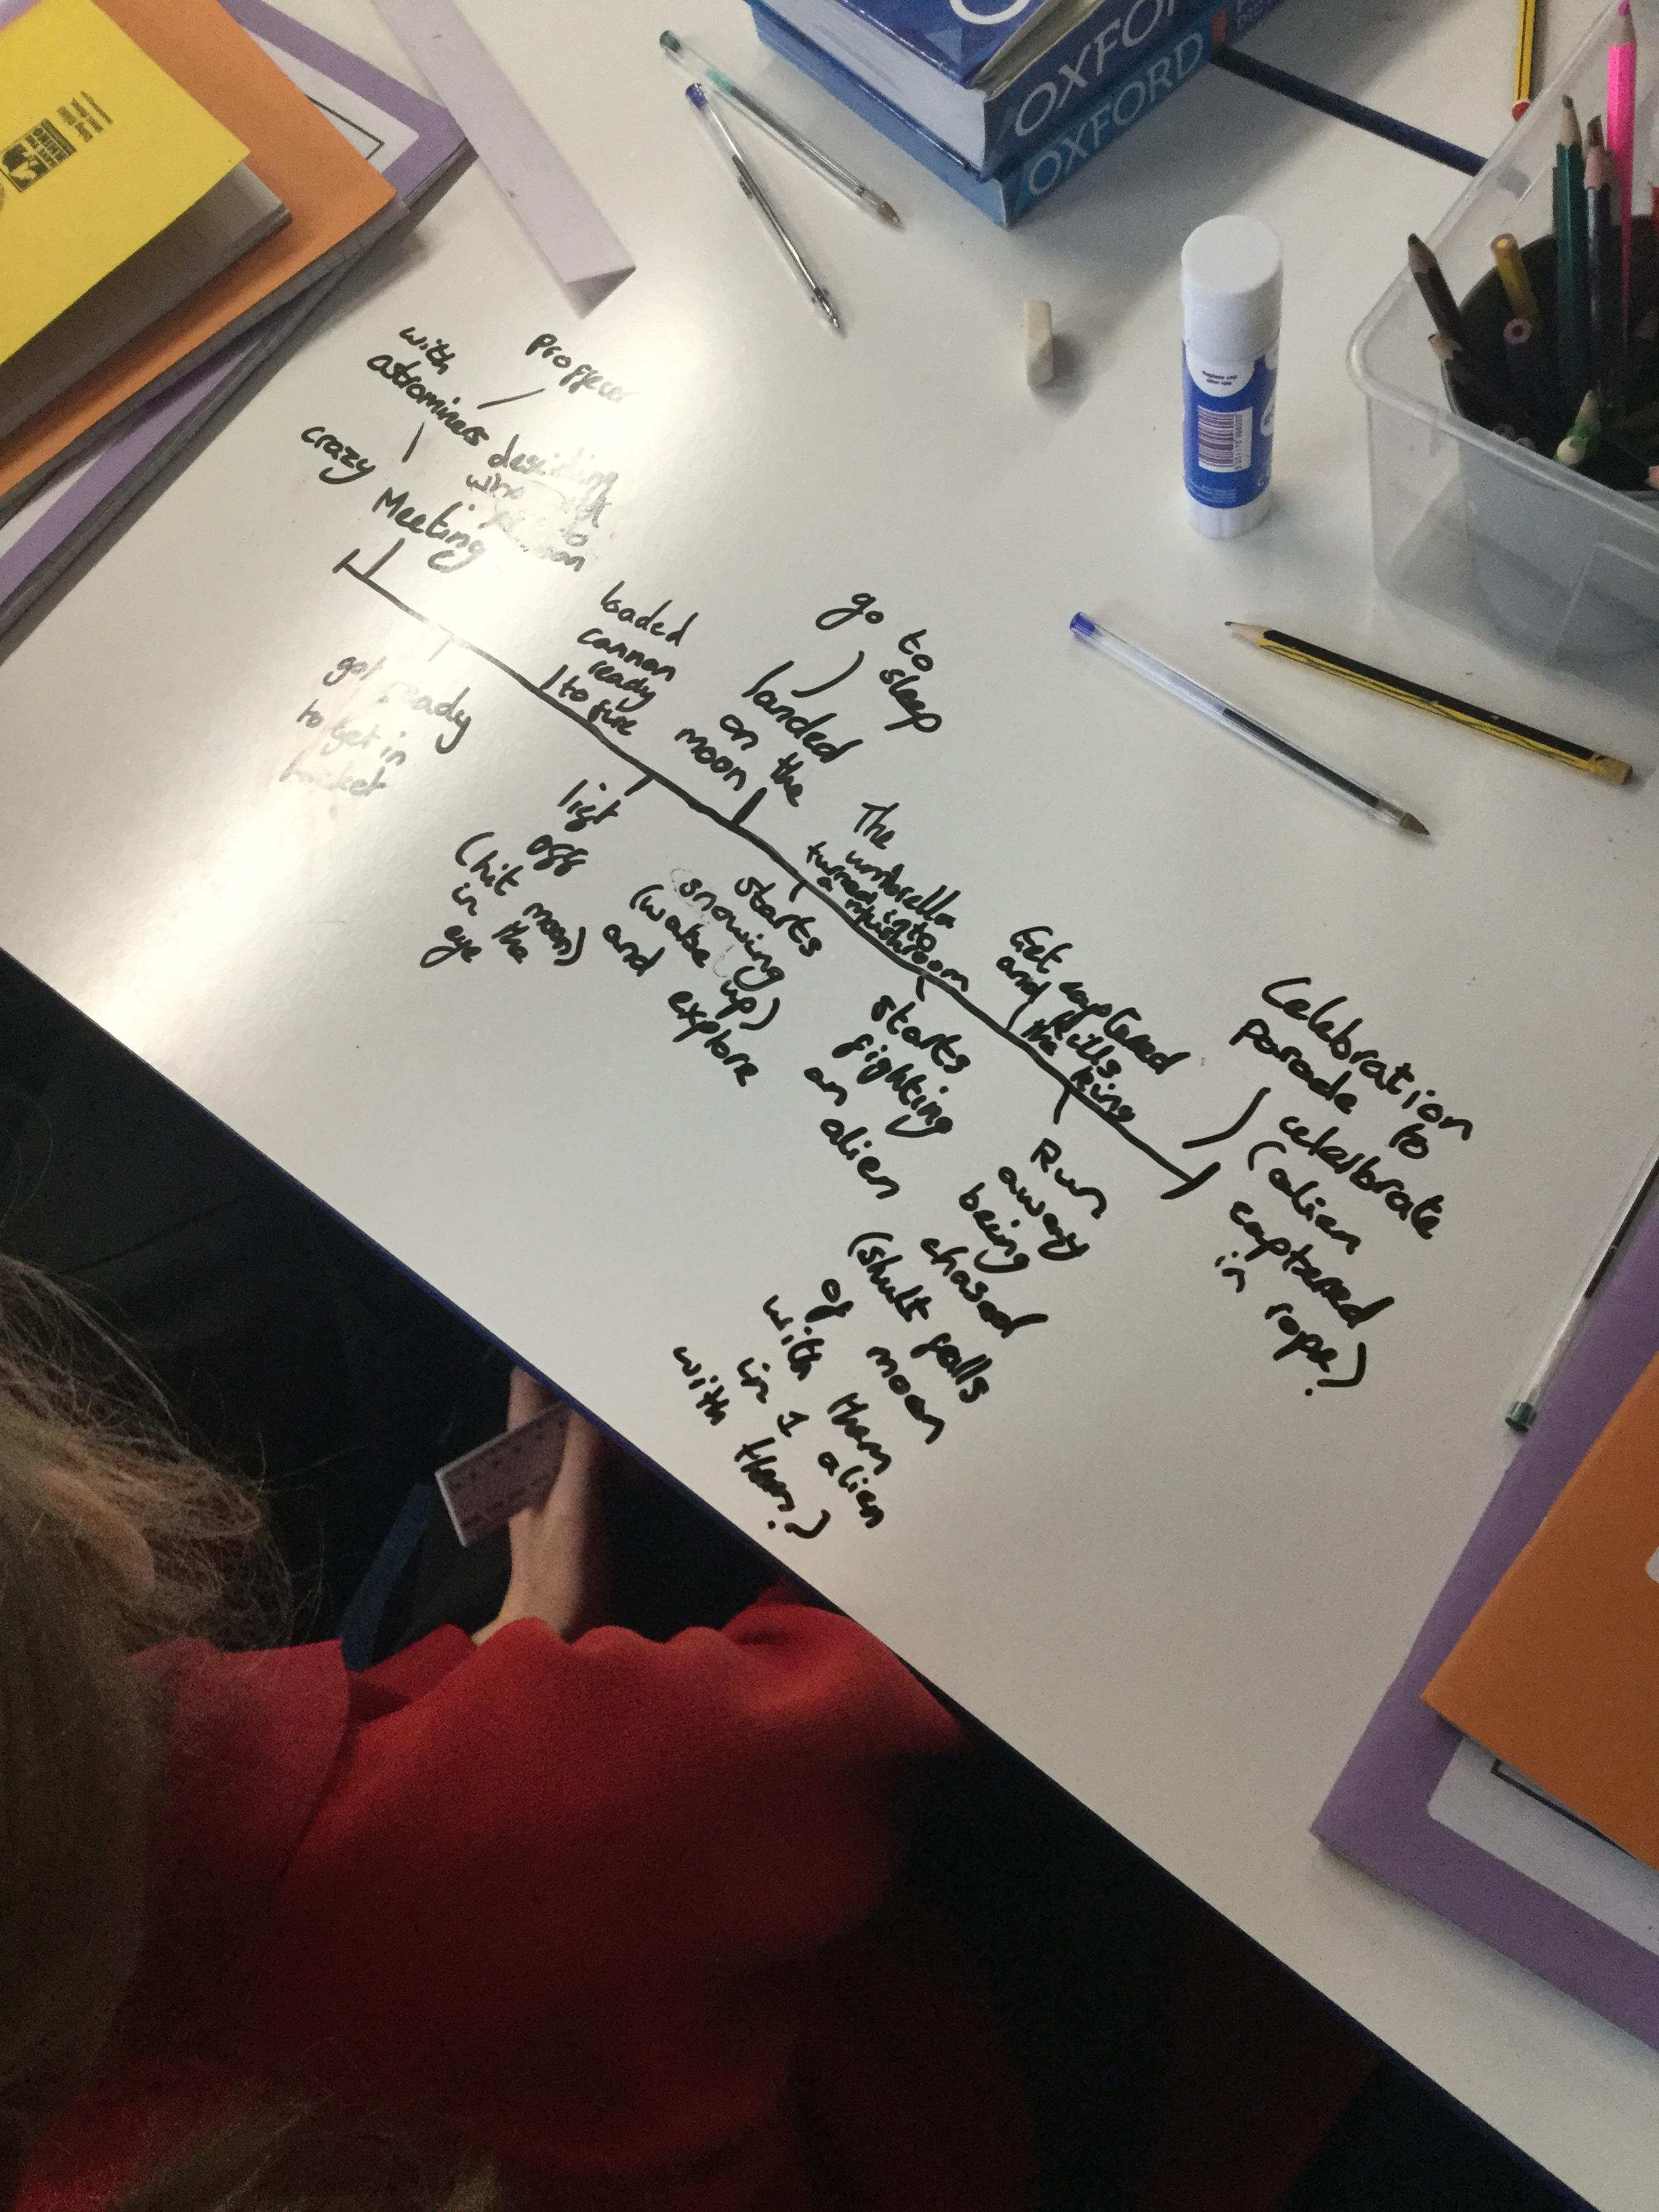 OXFORD
OXFORD
with
astrominers
Proffesor
crazy
Meeting
desiding
got ready
to get in
loaded
cannon
ready
to fire
lift
off
(hit moon)
in the
eye
go to
sleep
landed
on the
moon
starts
snowing
(wake up)
and explore
The
umbrella
turned into
a mushroom
starts
fighting
an alien
Get captured
and kills
the king
Run
away
being
chased
(shult falls
of moon
with them
in 1 alien
with them!)
Celebration
Parade to
celelbrate
(alien
captered
in rope!)